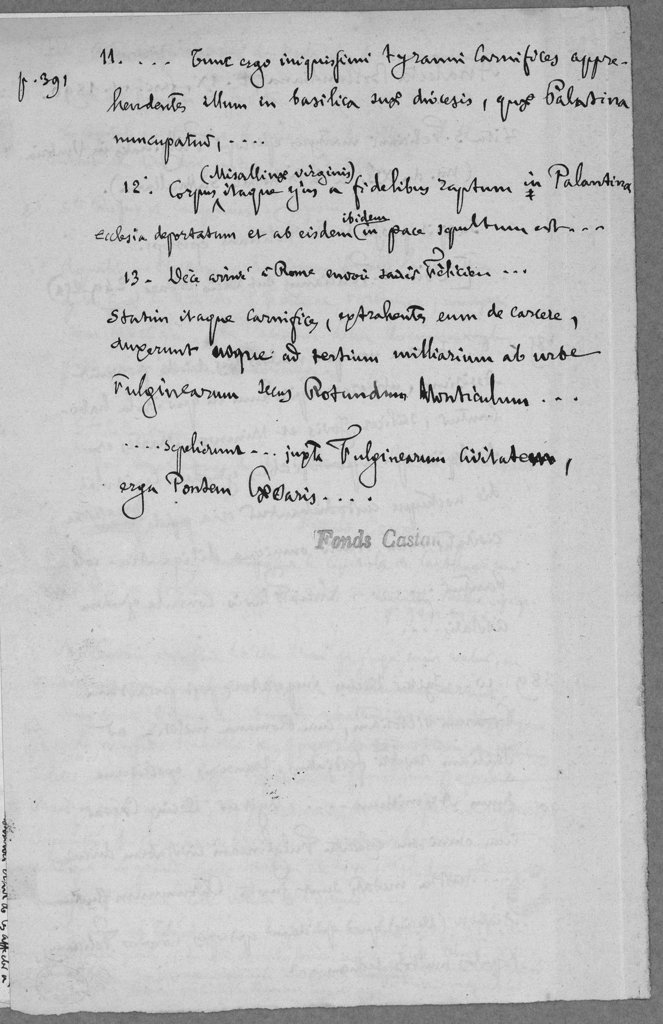 p. 391
11. . . . . Tunc ergo iniquissimi tyranni Carnifices appre-
hendentes illum in basilica suæ diocesis, quæ Palatina
nuncupatur, . . . .
(Misallinæ virginis)
12. Corpus itaque ejus a fidelibus raptum in Palantina
ibidem
ecclesia deportatum et ab eisdem in pace sepultum est . . .
13 - Dèce arrivé à Rome envoie saisir Félicien . . .
Statim itaque Carnifices, extrahentes eum de carcere,
duxerunt usque ad tertium milliarium ab urbe
Fulginearum secus Rotundum Monticulum . . .
. . . . sepelierunt . . . juxta Fulginearum Civitatem,
erga Pontem Cæsaris . . . .
Fonds Castan